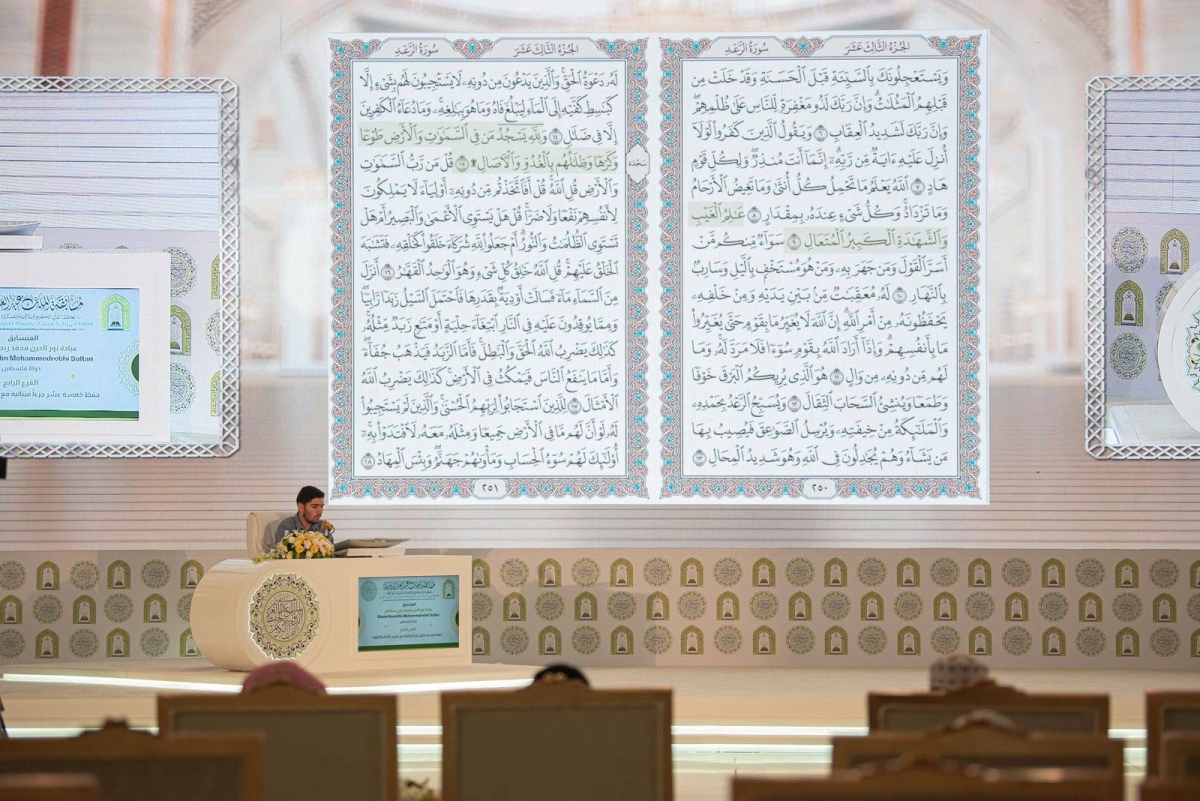 الجُزْءُ الثَّالِثَ عَشَرَ سُورَةُ الرَّعْدِ
وَيَسْتَعْجِلُونَكَ بِالسَّيِّئَةِ قَبْلَ الْحَسَنَةِ وَقَدْ خَلَتْ مِن
قَبْلِهِمُ الْمَثُلَٰتُ ۗ وَإِنَّ رَبَّكَ لَذُو مَغْفِرَةٍ لِّلنَّاسِ عَلَىٰ ظُلْمِهِمْ ۖ
وَإِنَّ رَبَّكَ لَشَدِيدُ الْعِقَابِ ٦ وَيَقُولُ الَّذِينَ كَفَرُوا لَوْلَا
أُنزِلَ عَلَيْهِ ءَايَةٌ مِّن رَّبِّهِ ۗ إِنَّمَا أَنتَ مُنذِرٌ ۖ وَلِكُلِّ قَوْمٍ
هَادٍ ٧ اللَّهُ يَعْلَمُ مَا تَحْمِلُ كُلُّ أُنثَىٰ وَمَا تَغِيضُ الْأَرْحَامُ
وَمَا تَزْدَادُ ۖ وَكُلُّ شَيْءٍ عِندَهُ بِمِقْدَارٍ ٨ عَٰلِمُ الْغَيْبِ
وَالشَّهَٰدَةِ الْكَبِيرُ الْمُتَعَالِ ٩ سَوَاءٌ مِّنكُم مَّنْ
أَسَرَّ الْقَوْلَ وَمَن جَهَرَ بِهِ وَمَنْ هُوَ مُسْتَخْفٍ بِالَّيْلِ وَسَارِبٌ
بِالنَّهَارِ ١٠ لَهُ مُعَقِّبَٰتٌ مِّن بَيْنِ يَدَيْهِ وَمِنْ خَلْفِهِ
يَحْفَظُونَهُ مِنْ أَمْرِ اللَّهِ ۗ إِنَّ اللَّهَ لَا يُغَيِّرُ مَا بِقَوْمٍ حَتَّىٰ يُغَيِّرُوا
مَا بِأَنفُسِهِمْ ۗ وَإِذَا أَرَادَ اللَّهُ بِقَوْمٍ سُوءًا فَلَا مَرَدَّ لَهُ ۚ وَمَا
لَهُم مِّن دُونِهِ مِن وَالٍ ١١ هُوَ الَّذِي يُرِيكُمُ الْبَرْقَ خَوْفًا
وَطَمَعًا وَيُنشِئُ السَّحَابَ الثِّقَالَ ١٢ وَيُسَبِّحُ الرَّعْدُ بِحَمْدِهِ
وَالْمَلَٰئِكَةُ مِنْ خِيفَتِهِ وَيُرْسِلُ الصَّوَٰعِقَ فَيُصِيبُ بِهَا
مَن يَشَاءُ وَهُمْ يُجَٰدِلُونَ فِي اللَّهِ وَهُوَ شَدِيدُ الْمِحَالِ ١٣
٢٥٠
الجُزْءُ الثَّالِثَ عَشَرَ سُورَةُ الرَّعْدِ
لَهُ دَعْوَةُ الْحَقِّ ۖ وَالَّذِينَ يَدْعُونَ مِن دُونِهِ لَا يَسْتَجِيبُونَ لَهُم بِشَيْءٍ إِلَّا
كَبَٰسِطِ كَفَّيْهِ إِلَى الْمَاءِ لِيَبْلُغَ فَاهُ وَمَا هُوَ بِبَٰلِغِهِ ۚ وَمَا دُعَاءُ الْكَٰفِرِينَ
إِلَّا فِي ضَلَٰلٍ ١٤ وَلِلَّهِ يَسْجُدُ مَن فِي السَّمَٰوَٰتِ وَالْأَرْضِ طَوْعًا
وَكَرْهًا وَظِلَٰلُهُم بِالْغُدُوِّ وَالْءَاصَالِ ۩ ١٥ قُلْ مَن رَّبُّ السَّمَٰوَٰتِ
سَجْدَة
وَالْأَرْضِ قُلِ اللَّهُ ۚ قُلْ أَفَاتَّخَذْتُم مِّن دُونِهِ أَوْلِيَاءَ لَا يَمْلِكُونَ
لِأَنفُسِهِمْ نَفْعًا وَلَا ضَرًّا ۚ قُلْ هَلْ يَسْتَوِي الْأَعْمَىٰ وَالْبَصِيرُ أَمْ هَلْ
تَسْتَوِي الظُّلُمَٰتُ وَالنُّورُ ۗ أَمْ جَعَلُوا لِلَّهِ شُرَكَاءَ خَلَقُوا كَخَلْقِهِ فَتَشَٰبَهَ
الْخَلْقُ عَلَيْهِمْ ۚ قُلِ اللَّهُ خَٰلِقُ كُلِّ شَيْءٍ وَهُوَ الْوَٰحِدُ الْقَهَّٰرُ ١٦ أَنزَلَ
مِنَ السَّمَاءِ مَاءً فَسَالَتْ أَوْدِيَةٌ بِقَدَرِهَا فَاحْتَمَلَ السَّيْلُ زَبَدًا رَّابِيًا ۚ
وَمِمَّا يُوقِدُونَ عَلَيْهِ فِي النَّارِ ابْتِغَاءَ حِلْيَةٍ أَوْ مَتَٰعٍ زَبَدٌ مِّثْلُهُ ۚ
كَذَٰلِكَ يَضْرِبُ اللَّهُ الْحَقَّ وَالْبَٰطِلَ ۚ فَأَمَّا الزَّبَدُ فَيَذْهَبُ جُفَاءً ۖ
وَأَمَّا مَا يَنفَعُ النَّاسَ فَيَمْكُثُ فِي الْأَرْضِ ۚ كَذَٰلِكَ يَضْرِبُ اللَّهُ
الْأَمْثَالَ ١٧ لِلَّذِينَ اسْتَجَابُوا لِرَبِّهِمُ الْحُسْنَىٰ ۚ وَالَّذِينَ لَمْ يَسْتَجِيبُوا
لَهُ لَوْ أَنَّ لَهُم مَّا فِي الْأَرْضِ جَمِيعًا وَمِثْلَهُ مَعَهُ لَافْتَدَوْا بِهِ ۚ
أُولَٰئِكَ لَهُمْ سُوءُ الْحِسَابِ وَمَأْوَىٰهُمْ جَهَنَّمُ ۖ وَبِئْسَ الْمِهَادُ ١٨
٢٥١
المتسابق
عبادة نور الدين محمد
Mohammedrebhi Sultan
دولة فلسطين
الفرع الرابع
حفظ خمسة عشر جزءاً متتالية مع
المتسابق
Mohammedrebhi Sultan
دولة فلسطين
الفرع الرابع